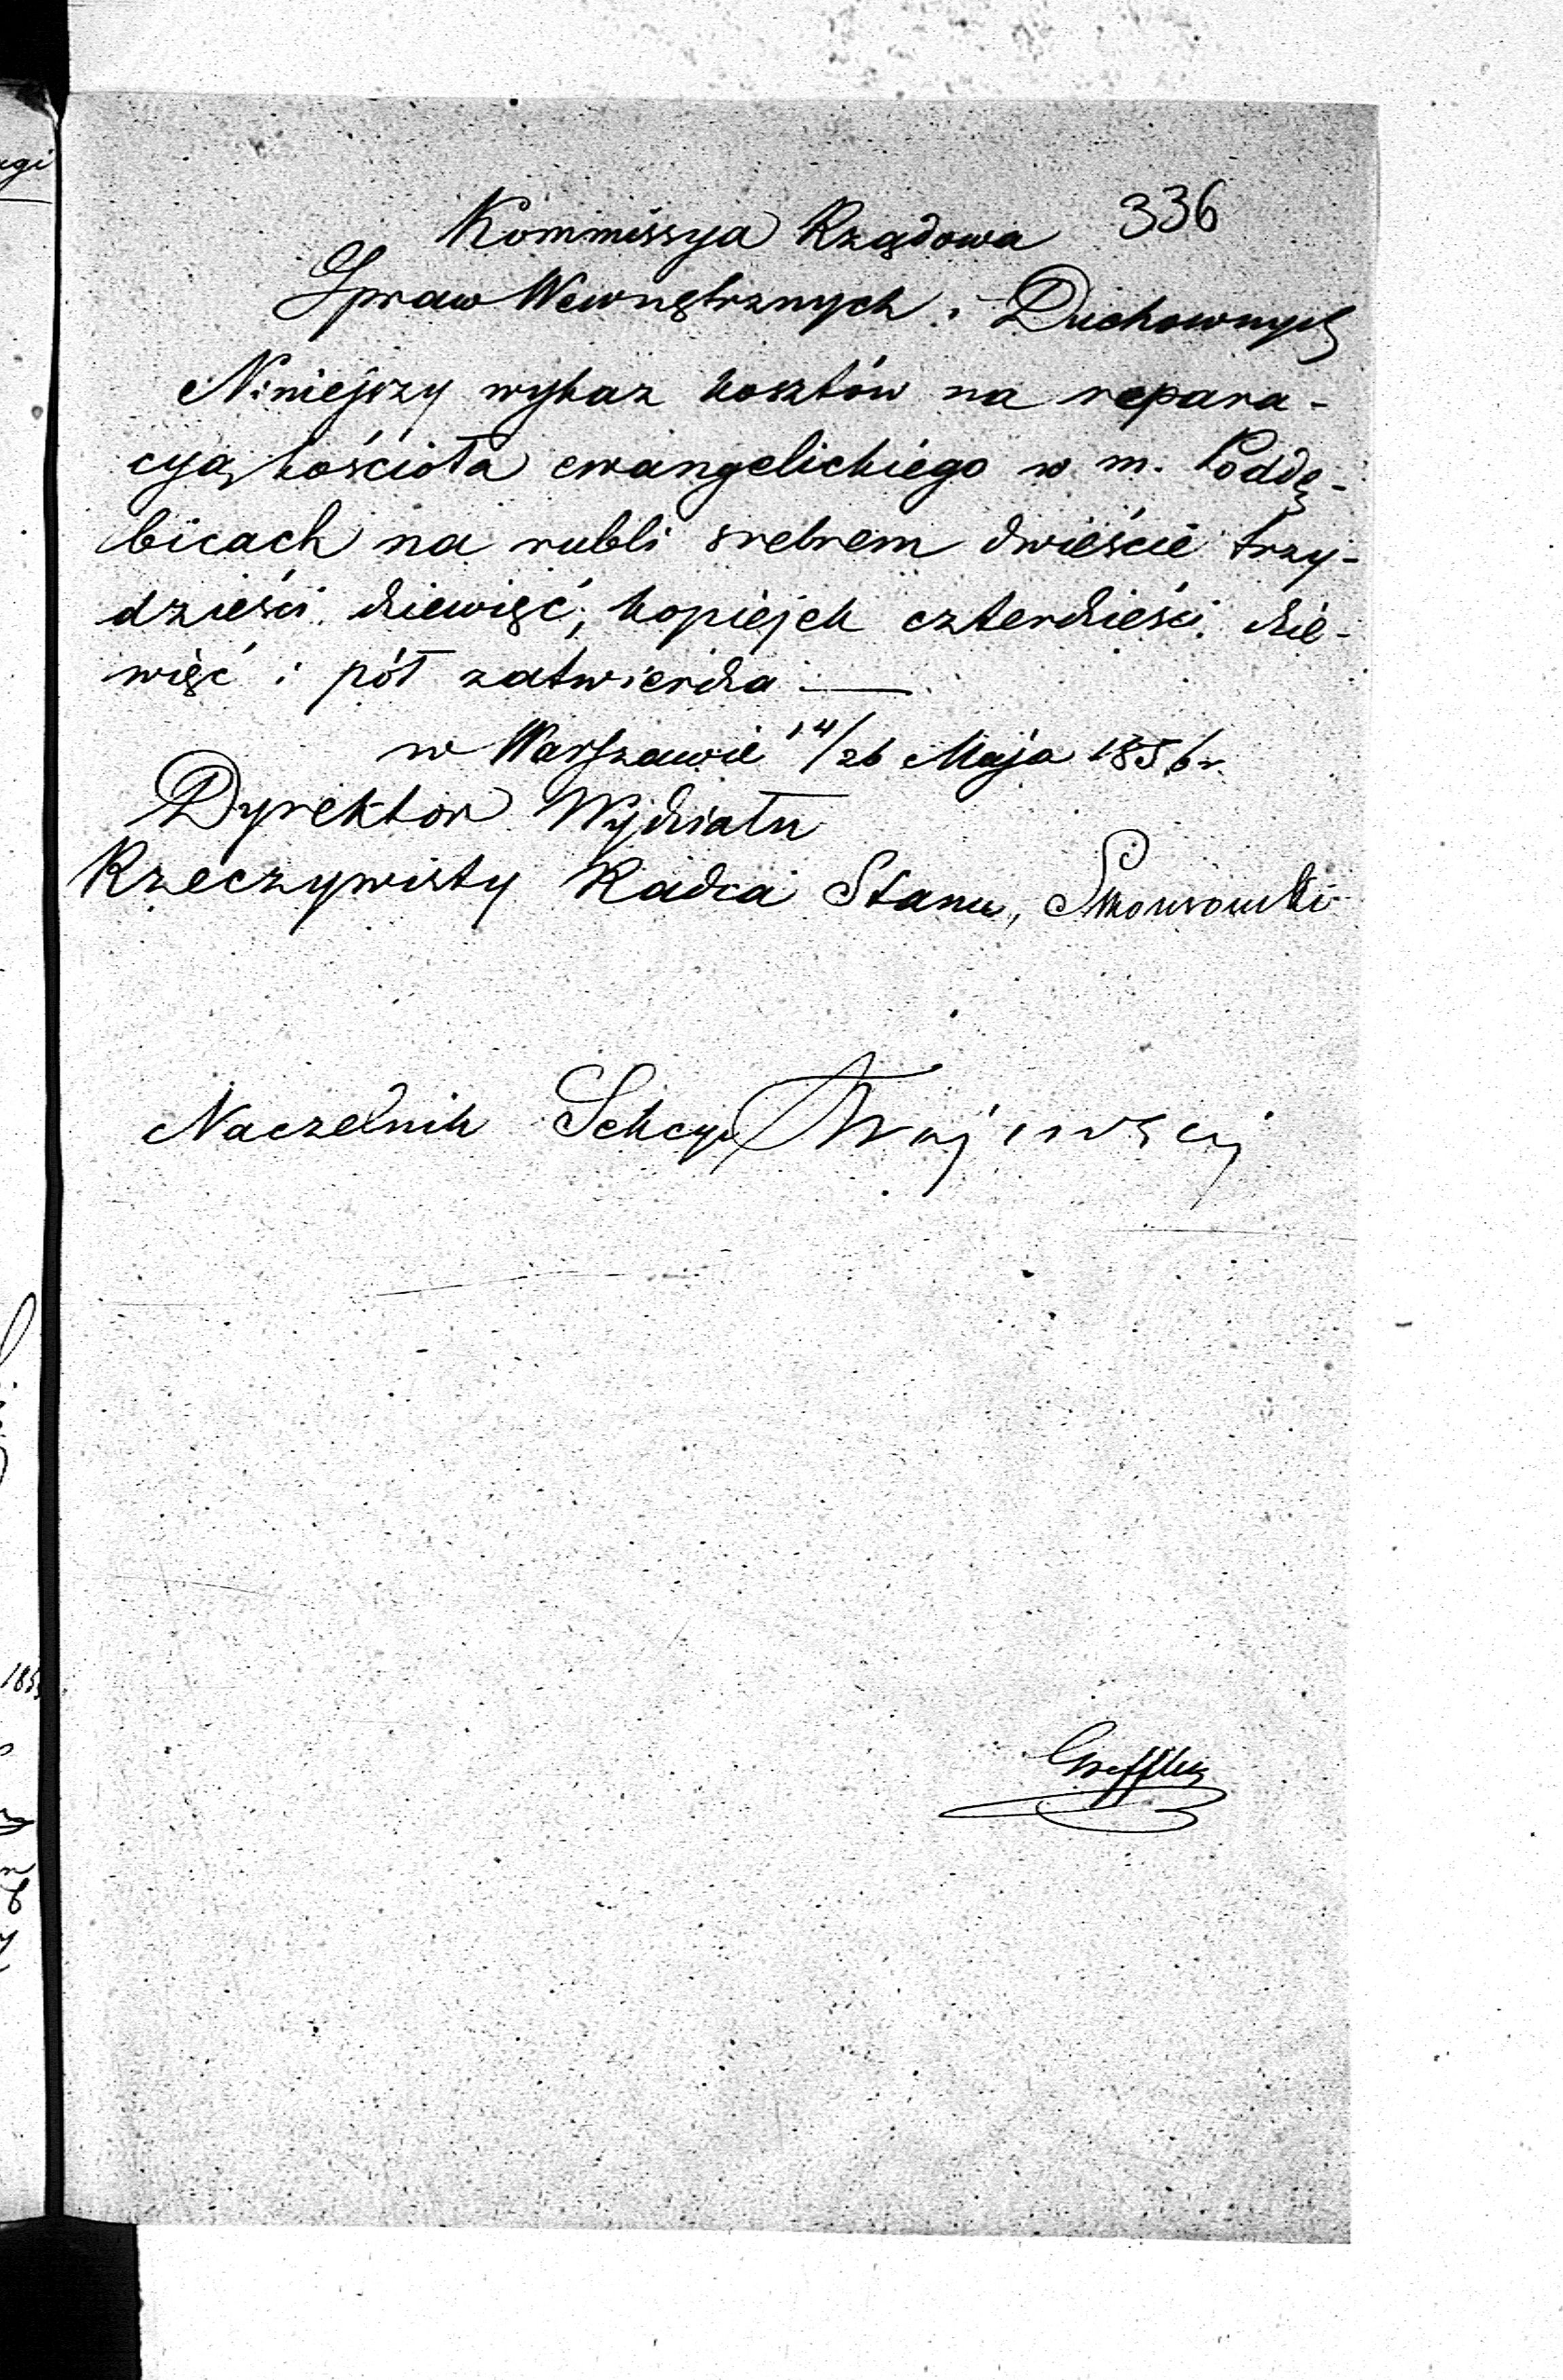 336
Kommissya Rządowa
Spraw Wewnętrznych i Duchownych
Niniejszy wykaz kosztów na repara-
cyą kościoła ewangelickiego w m. Poddę-
bicach na rubli srebrem dwieście trzy-
dzieści dziewięć, kopiejek czterdzieści dzie-
więć i pół zatwierdza —
w Warszawie 14/26 Maja 1856 r.
Dyrektor Wydziału
Rzeczywisty Radca Stanu,
Naczelnik Sekcyi